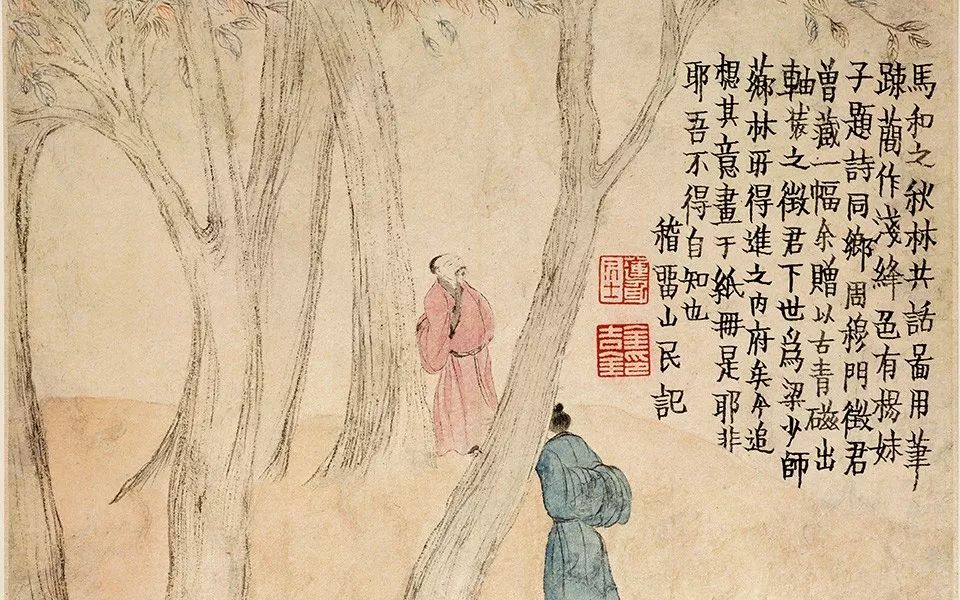 馬和之秋林共話啚用筆
疎蕳作淺絳色有楊妹
子題詩同鄉周穆門徵君
曾藏一幅余贈以古青磁出
軸裝之徵君下世爲梁少師
薌林所得進之内府矣今追
想其意畫于紙冊是耶非
耶吾不得自知也
稽畱山民記
蓮身居士
金吉金印